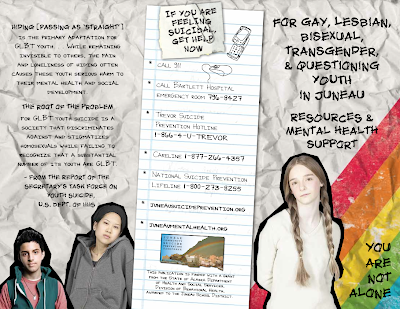 HIDING [PASSING AS "STRAIGHT"]
IS THE PRIMARY ADAPTATION FOR
GLBT YOUTH. WHILE REMAINING
INVISIBLE TO OTHERS, THE PAIN
AND LONELINESS OF HIDING OFTEN
CAUSES THESE YOUTH SERIOUS HARM TO
THEIR MENTAL HEALTH AND SOCIAL
DEVELOPMENT.
THE ROOT OF THE PROBLEM
FOR GLBT YOUTH SUICIDE IS A
SOCIETY THAT DISCRIMINATES
AGAINST AND STIGMATIZES
HOMOSEXUALS WHILE FAILING TO
RECOGNIZE THAT A SUBSTANTIAL
NUMBER OF ITS YOUTH ARE GLBT.
- FROM THE REPORT OF THE
SECRETARY'S TASK FORCE ON
YOUTH SUICIDE,
U.S. DEPT. OF HHS
IF YOU ARE
FEELING
SUICIDAL,
GET HELP
NOW
CALL 911
CALL BARTLETT HOSPITAL
EMERGENCY ROOM 796-8427
TREVOR SUICIDE
PREVENTION HOTLINE
1-866-4-U-TREVOR
CARELINE 1-877-266-4357
NATIONAL SUICIDE PREVENTION
LIFELINE 1-800-273-8255
JUNEAUSUICIDEPREVENTION.ORG
JUNEAUMENTALHEALTH.ORG
THIS PUBLICATION IS FUNDED WITH A GRANT
FROM THE STATE OF ALASKA DEPARTMENT
OF HEALTH AND SOCIAL SERVICES,
DIVISION OF BEHAVIORAL HEALTH,
AWARDED TO THE JUNEAU SCHOOL DISTRICT
FOR GAY, LESBIAN,
BISEXUAL,
TRANSGENDER,
& QUESTIONING
YOUTH
IN JUNEAU
RESOURCES &
MENTAL HEALTH
SUPPORT
YOU
ARE
NOT
ALONE